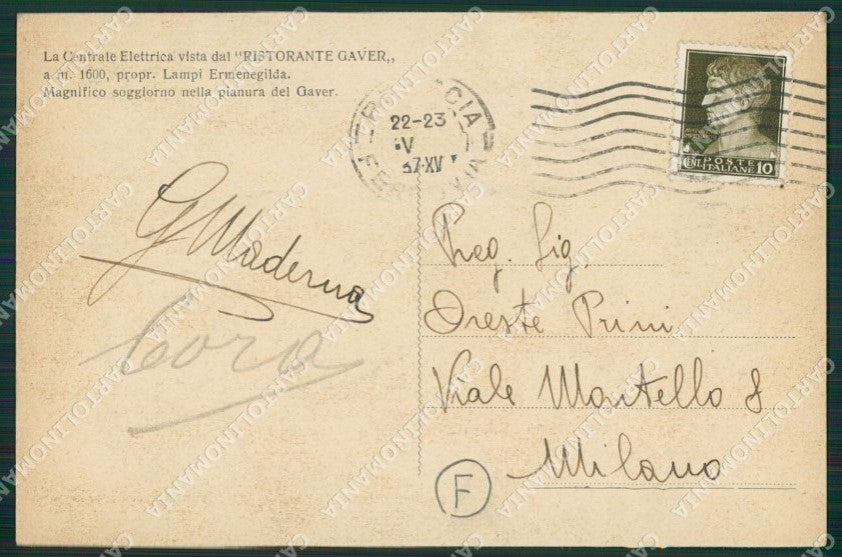 La Centrale Elettrica vista dal "RISTORANTE GAVER,,
a m. 1600, propr. Lampi Ermenegilda.
Magnifico soggiorno nella pianura del Gaver.
BRESCIA
22-23
V
37·XV
FERROVIA
CENT. POSTE
ITALIANE 10
G Maderna
Cora
Preg. Sig
Oreste Prini
Viale Montello 8
Milano
F
CARTOLINOMANIA